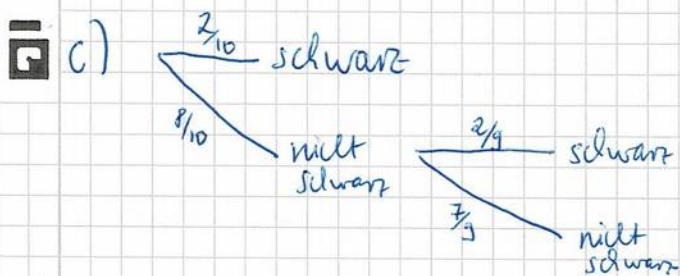 c)
2/10
schwarz
8/10
nicht
schwarz
2/9
schwarz
7/9
nicht
schwarz